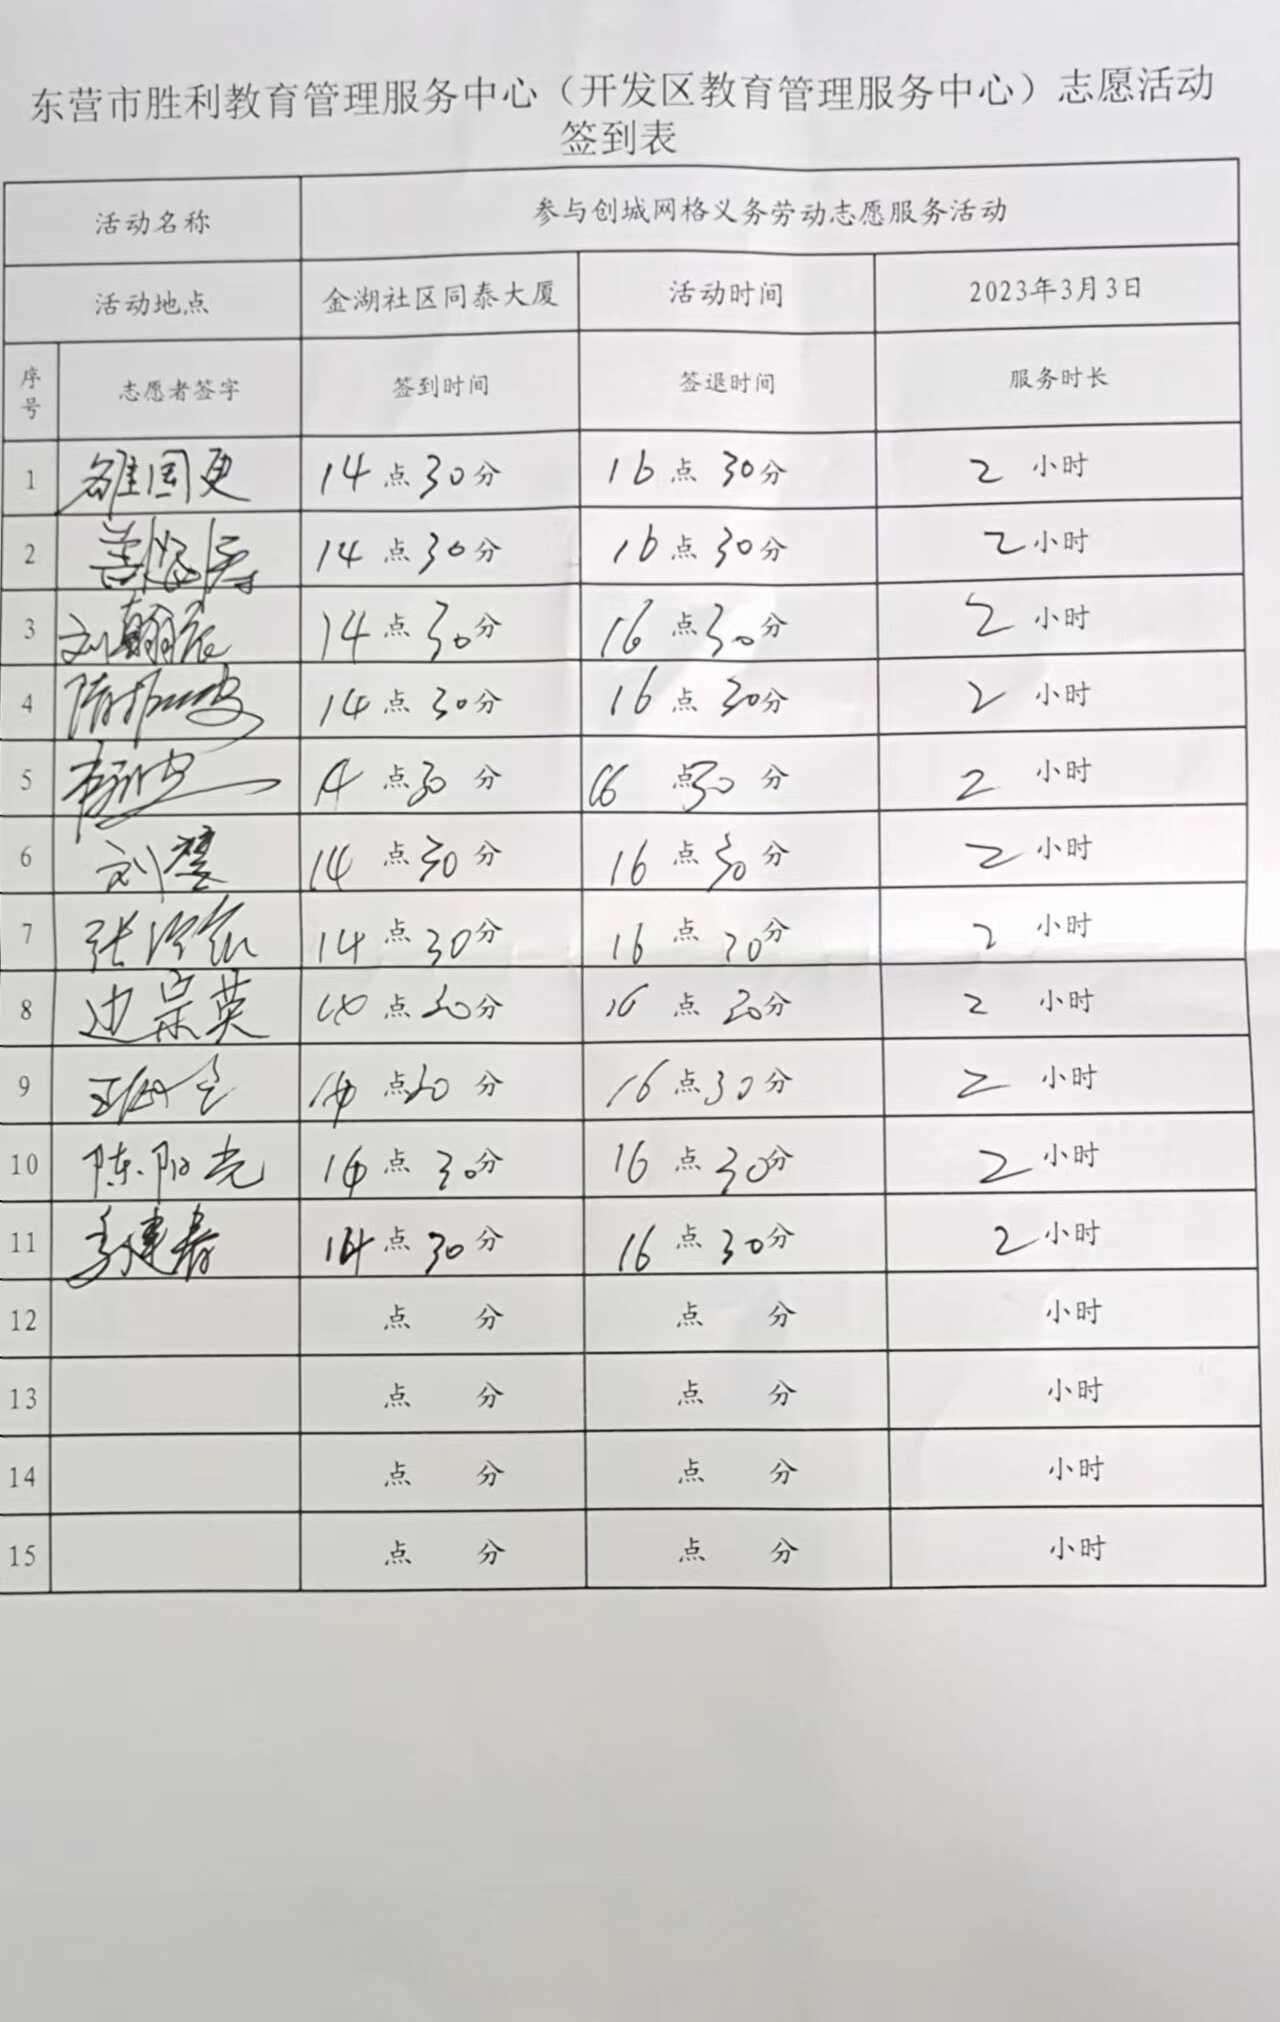 东营市胜利教育管理服务中心（开发区教育管理服务中心）志愿活动
签到表
活动名称 参与创城网格义务劳动志愿服务活动
活动地点 金湖社区同泰大厦 活动时间 2023年3月3日
序号 志愿者签字 签到时间 签退时间 服务时长
1 雒国更 14点30分 16点30分 2小时
2 14点30分 16点30分 2小时
3 刘翰宸 14点30分 16点30分 2小时
4 14点30分 16点30分 2小时
5 14点30分 16点30分 2小时
6 刘 14点30分 16点30分 2小时
7 张 14点30分 16点30分 2小时
8 边宗英 14点30分 16点30分 2小时
9 王 14点30分 16点30分 2小时
10 陈阳光 14点30分 16点30分 2小时
11 建春 14点30分 16点30分 2小时
12 点 分 点 分 小时
13 点 分 点 分 小时
14 点 分 点 分 小时
15 点 分 点 分 小时